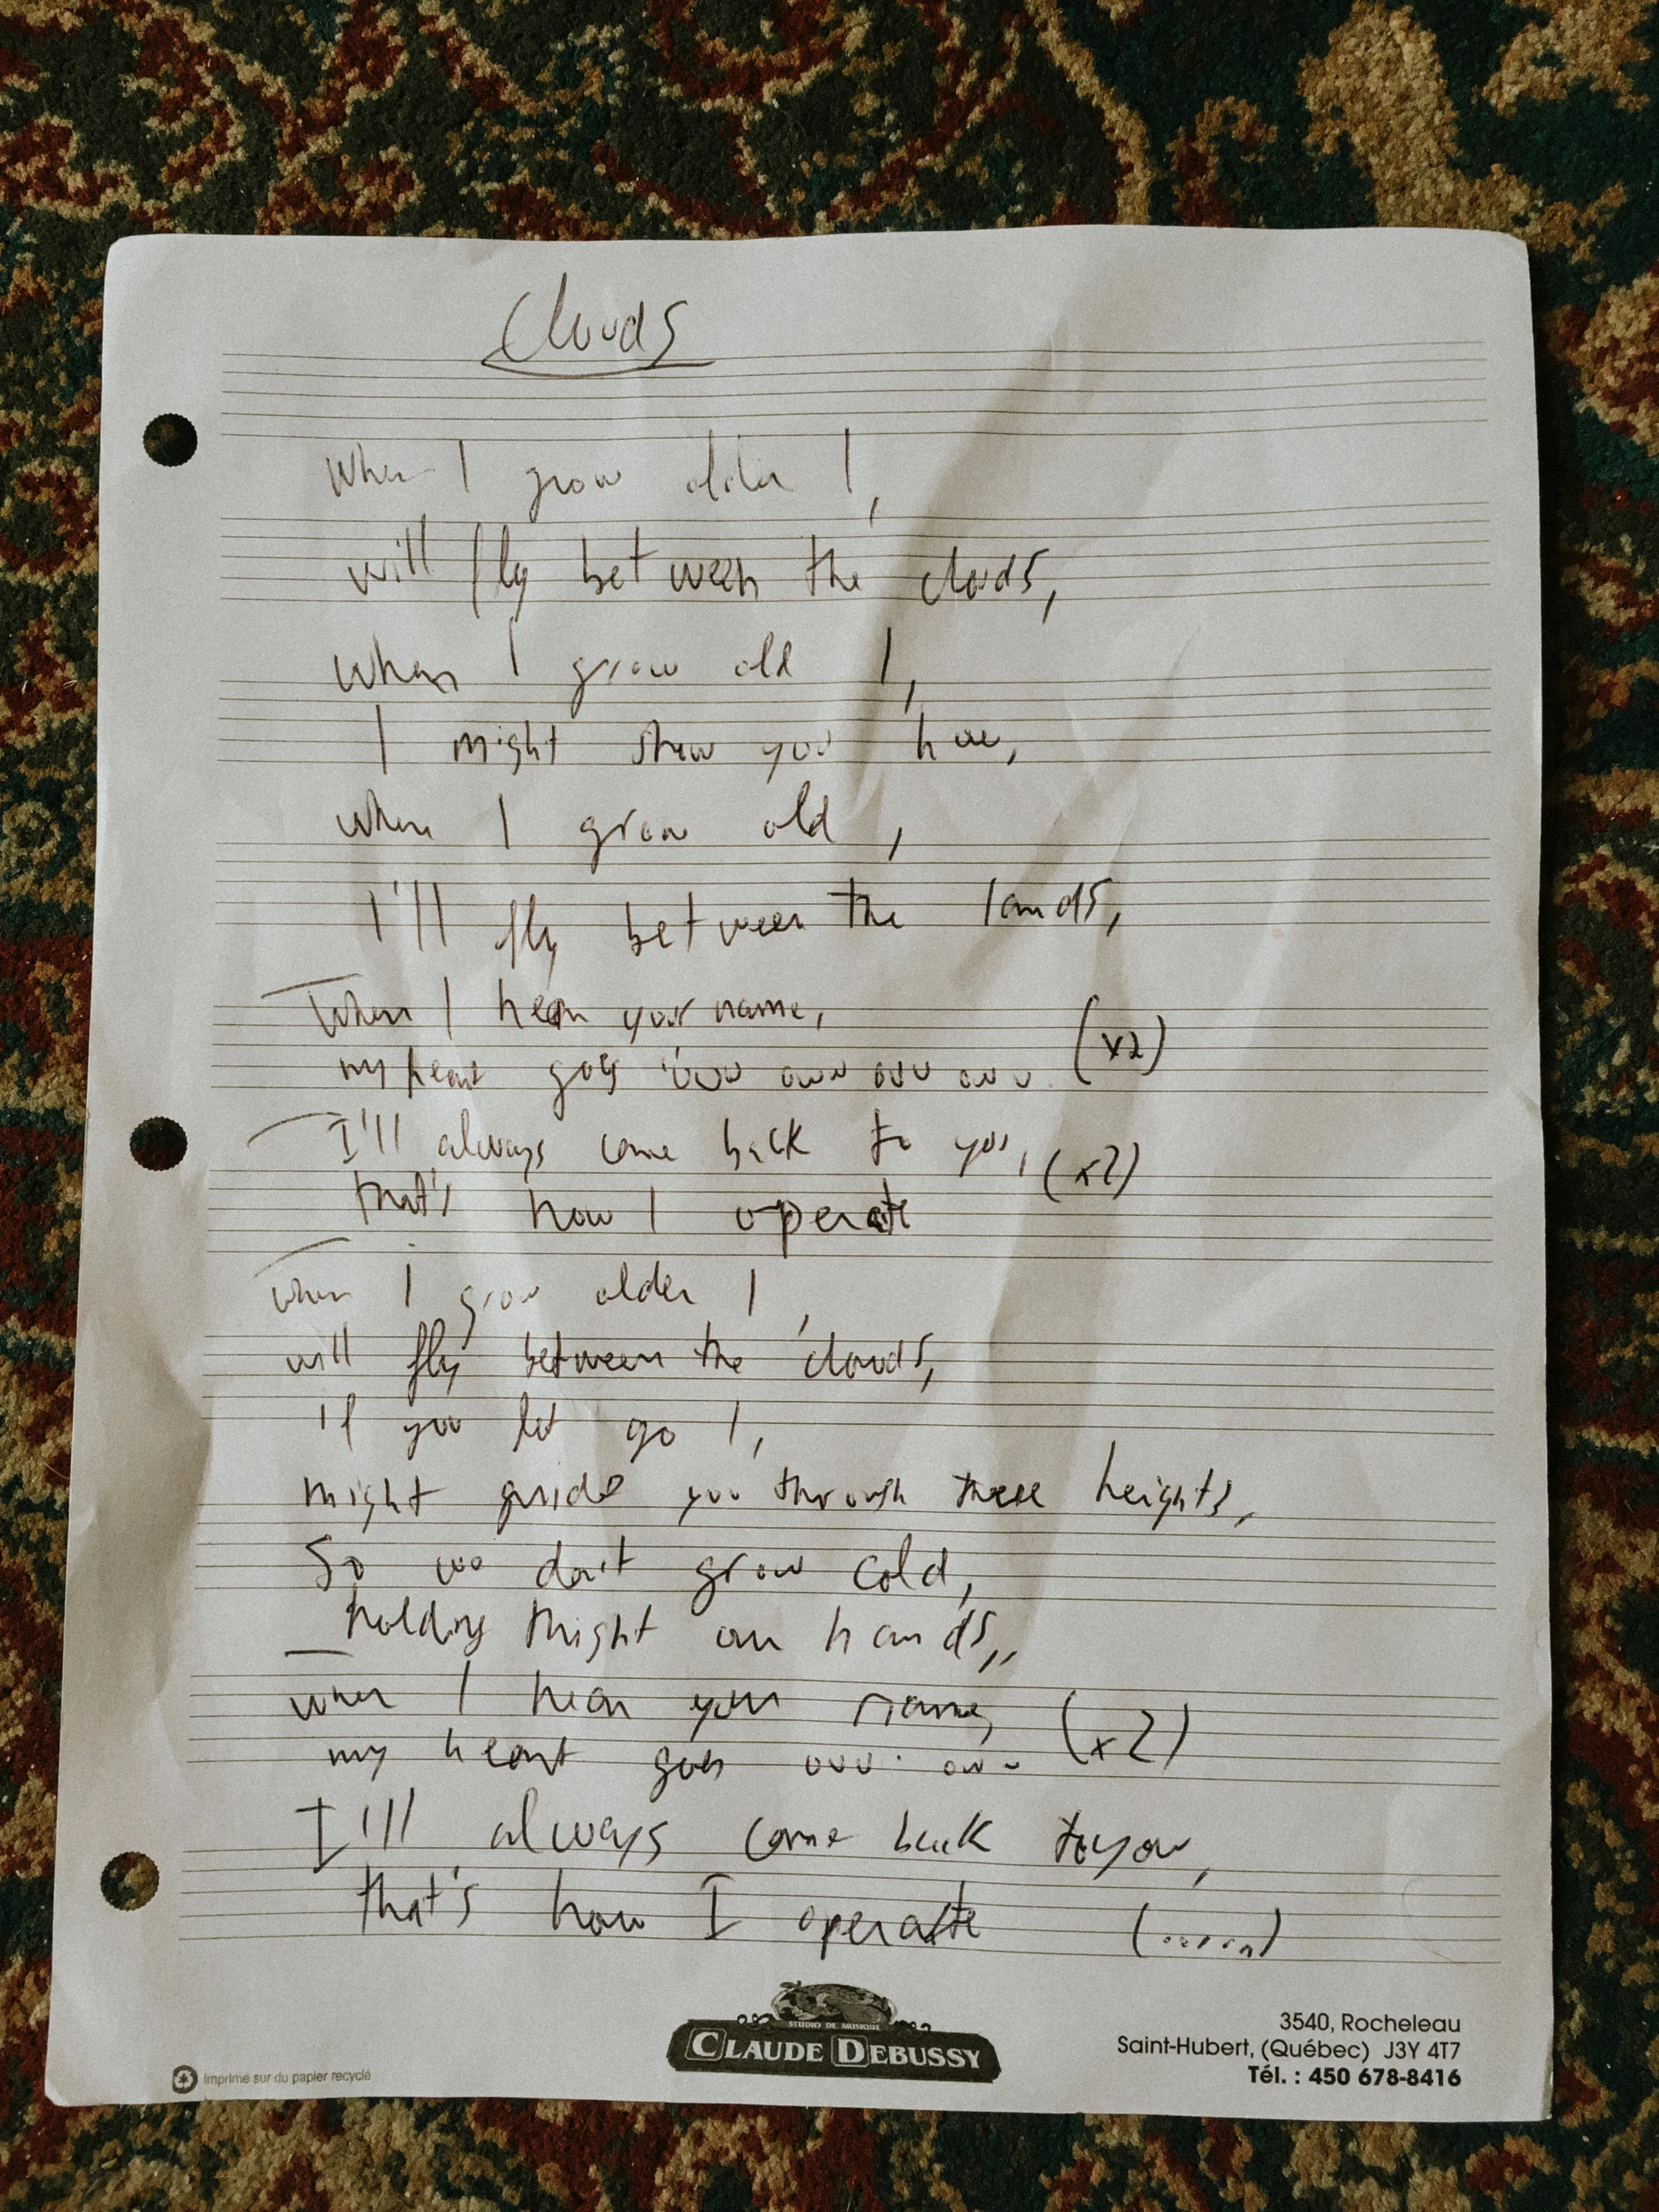 Clouds
When I grow older I,
will fly between the clouds,
When I grow old I,
I might show you how,
when I grow old,
I'll fly between the lands,
When I hear your name,
my heart goes ouu ouu ouu ouu (x2)
I'll always come back to you, (x2)
that's how I operate
When I grow older I,
will fly between the clouds,
if you let go I,
might guide you through these heights,
So we don't grow cold,
holding thight our hands,,
when I hear your name, (x2)
my heart goes ouu ouu
I'll always come back to you,
that's how I operate (......)
STUDIO DE MUSIQUE
CLAUDE DEBUSSY
3540, Rocheleau
Saint-Hubert, (Québec) J3Y 4T7
Tél. : 450 678-8416
Imprimé sur du papier recyclé